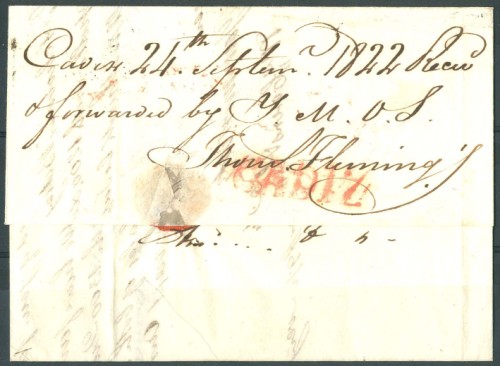 Cadix 24th Septemr. 1822 Recd
& forwarded by Y. M. O. S.
Thomas Fleming
CADIZ